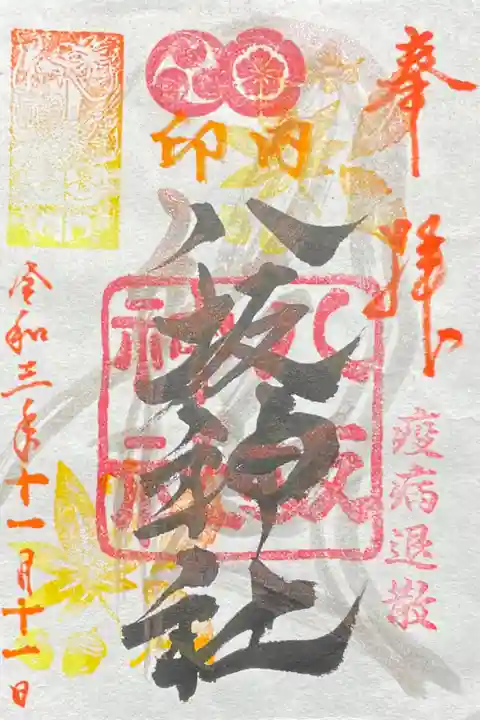 奉拝
疫病退散
八坂神社
八坂
神社
令和三年十一月十一日